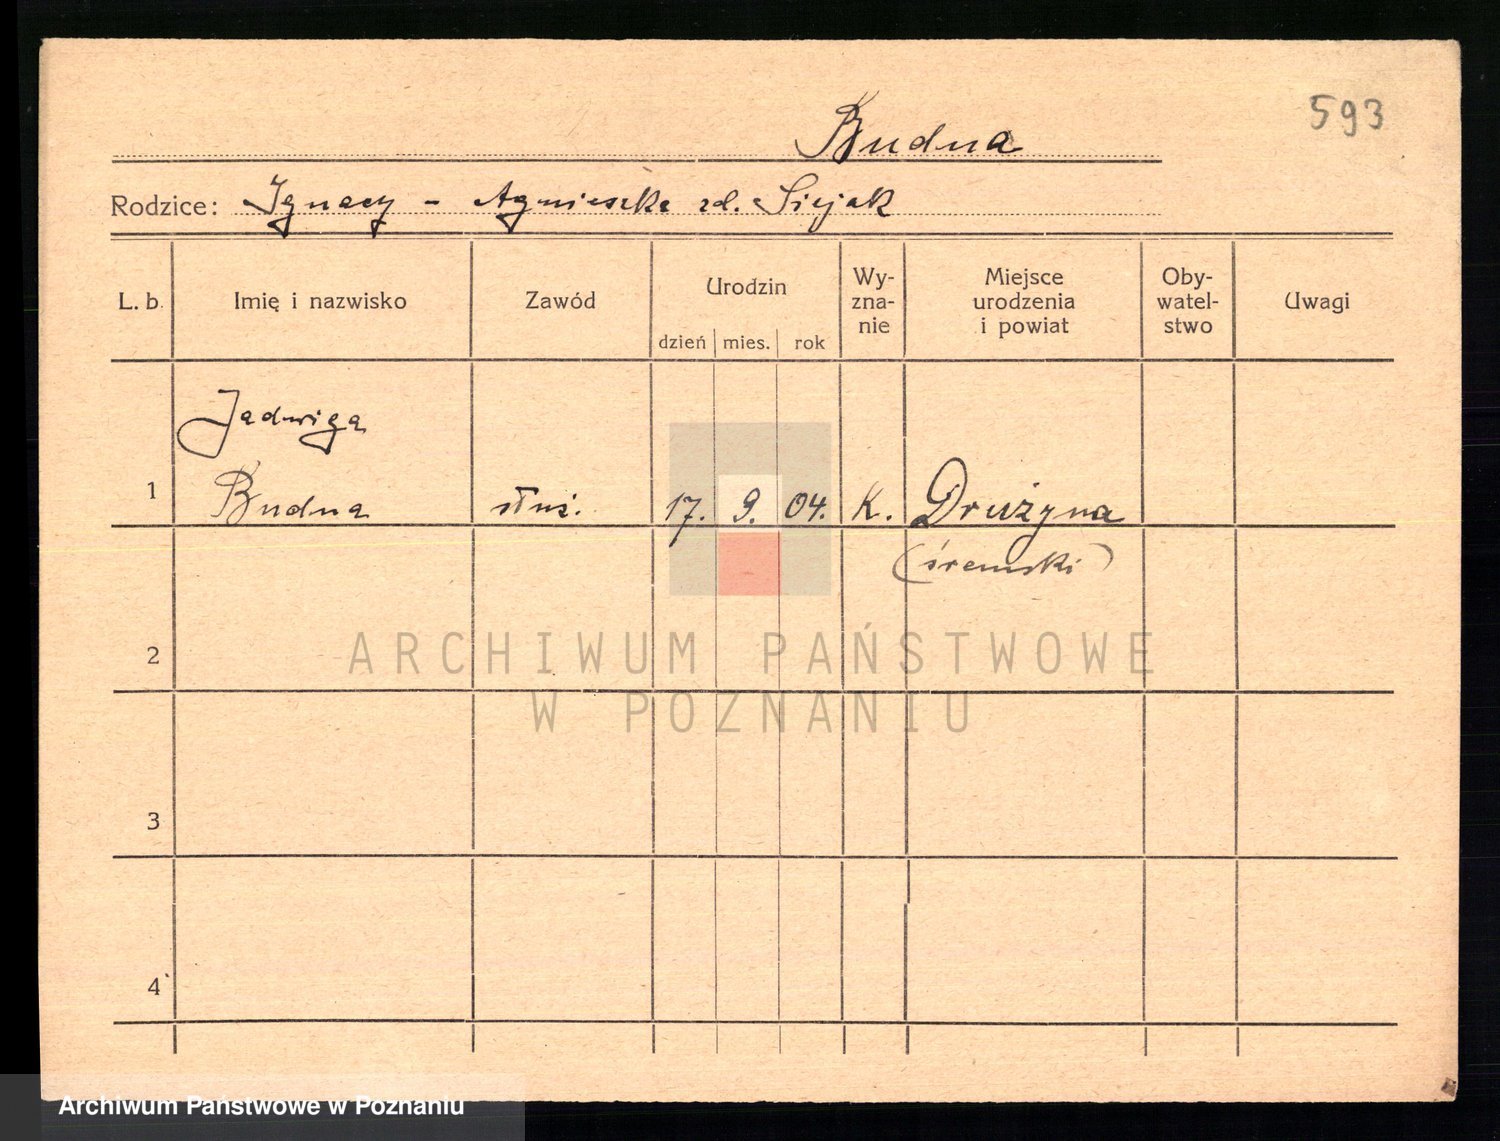 593
Budna
Rodzice: Ignacy - Agnieszka zd. Siejak
L. b. Imię i nazwisko Zawód Urodzin dzień mies. rok Wy-zna-nie Miejsce urodzenia i powiat Oby-watel-stwo Uwagi
Jadwiga
1 Budna służ. 17. 9. 04. K. Drużyna
(śremski)
2
ARCHIWUM PAŃSTWOWE
W POZNANIU
3
4
Archiwum Państwowe w Poznaniu